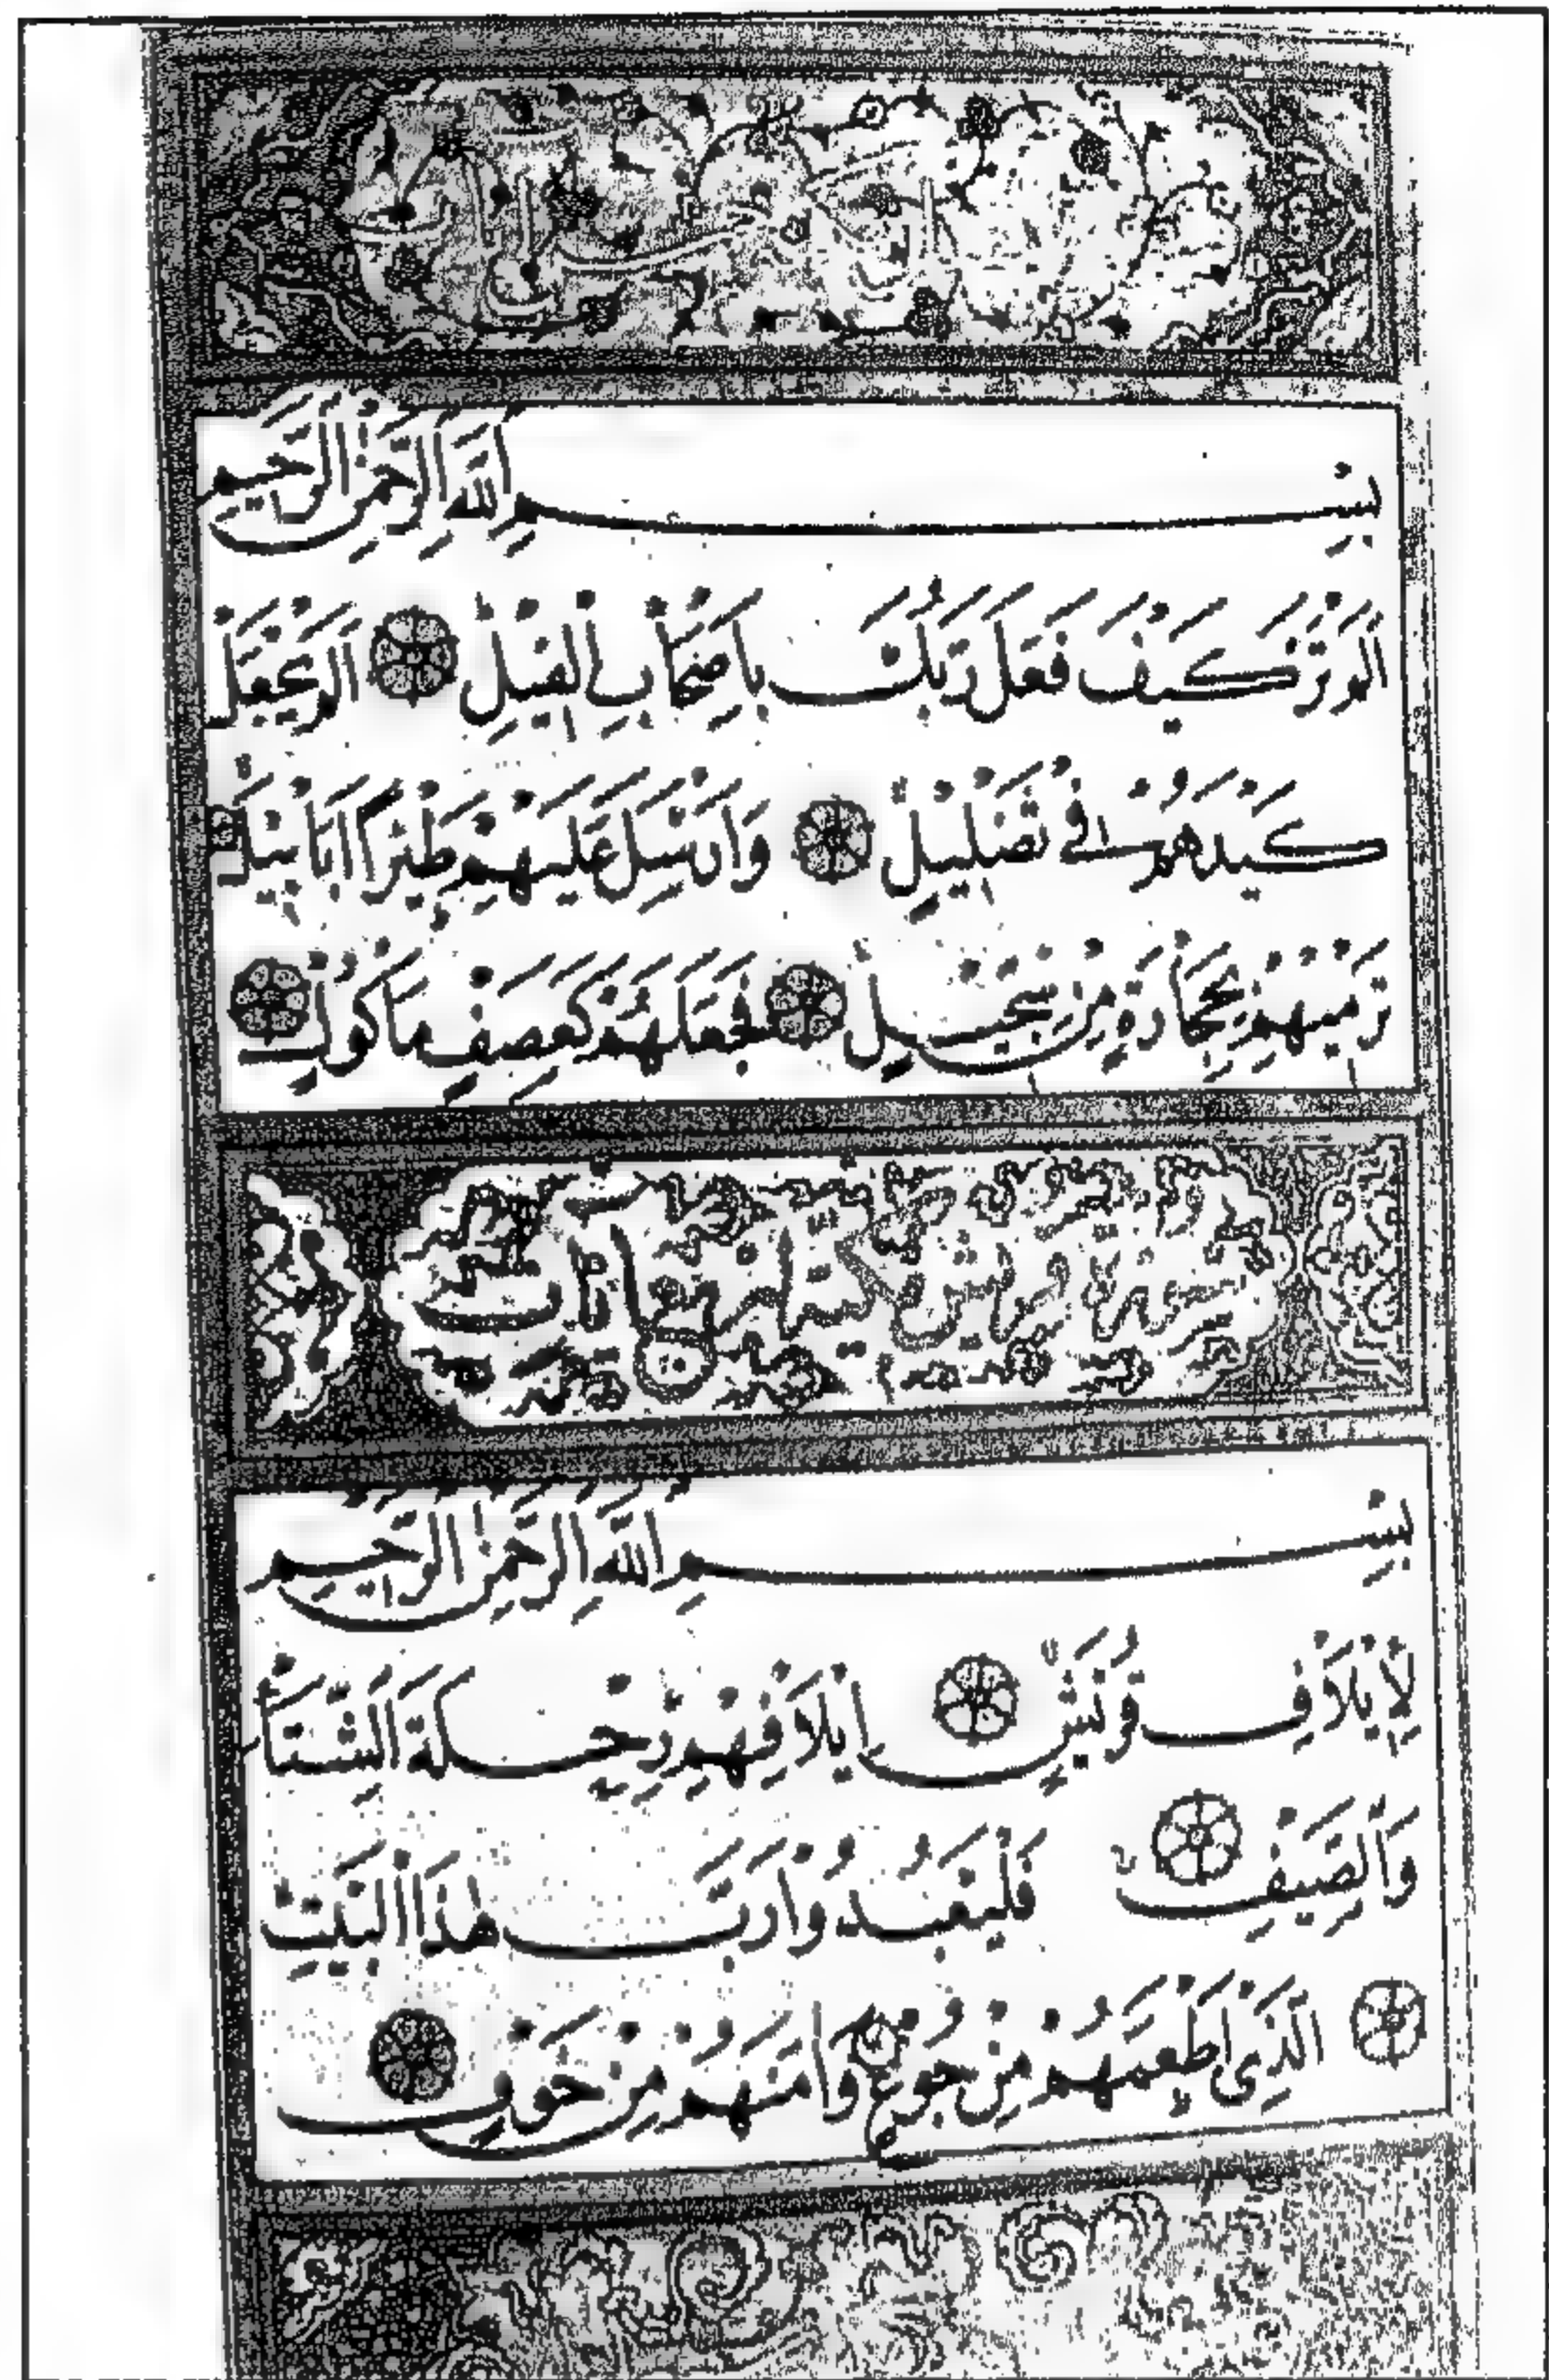 بِسْمِ اللَّهِ الرَّحْمَنِ الرَّحِيمِ
أَلَمْ تَرَ كَيْفَ فَعَلَ رَبُّكَ بِأَصْحَابِ الْفِيلِ أَلَمْ يَجْعَلْ
كَيْدَهُمْ فِي تَضْلِيلٍ وَأَرْسَلَ عَلَيْهِمْ طَيْرًا أَبَابِيلَ
تَرْمِيهِمْ بِحِجَارَةٍ مِنْ سِجِّيلٍ فَجَعَلَهُمْ كَعَصْفٍ مَأْكُولٍ
سورة قريش
بِسْمِ اللَّهِ الرَّحْمَنِ الرَّحِيمِ
لِإِيلَافِ قُرَيْشٍ إِيلَافِهِمْ رِحْلَةَ الشِّتَاءِ
وَالصَّيْفِ فَلْيَعْبُدُوا رَبَّ هَذَا الْبَيْتِ
الَّذِي أَطْعَمَهُمْ مِنْ جُوعٍ وَآمَنَهُمْ مِنْ خَوْفٍ